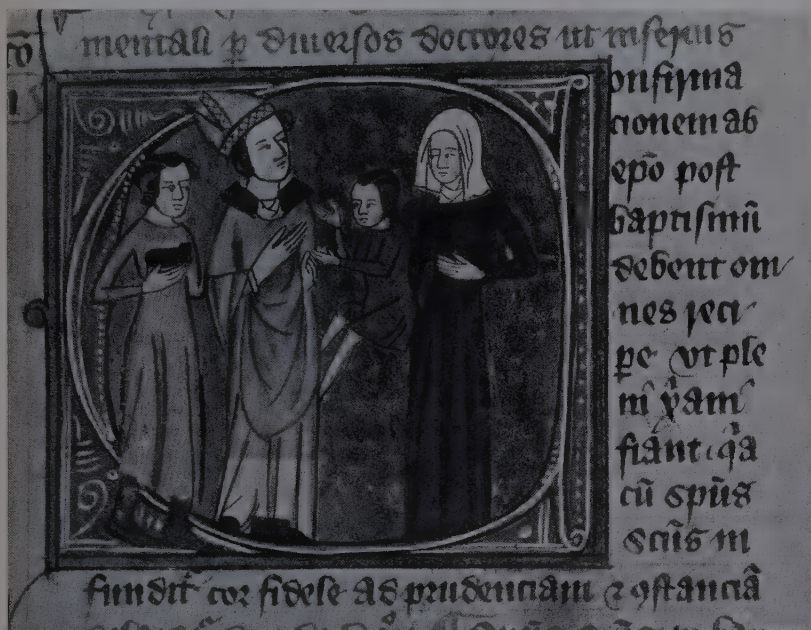 mentali ꝑ diuersos doctores ut inferius
onfirma
cionem ab
ep̄o post
baptismū
debent om
nes reci
ꝑe vt ple
fiant qͣa
cū sp̄us
sc̄us in
fundit cor fidele ad prudenciam ⁊ ꝯstanciā